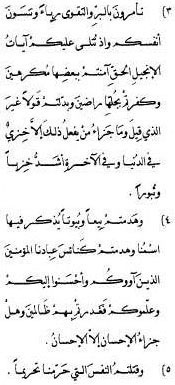 ٣) تأمرون بالبر والتقوى رياءً وتنسون
أنفسكم واذ تتلى عليكم آيات
الإنجيل الحق آمنتم ببعضها مكرهين
وكفرتم بجلها راضين وبدلتم قولا غير
الذي قيل وما جزاء من يفعل ذلك إلا خزي
في الدنيا وفي الآخرة أشد خزيا
وثبورا
٤) وهدمتم بيعا وبيوتا يذكر فيها
اسمنا وهدمتم كنائس عبادنا المؤمنين
الذين آووكم وأحسنوا إليكم
وعلّموكم فغدرتم بهم ظالمين وهل
جزاء الإحسان إلا الإحسان.
٥) وقتلتم النفس التي حرّمنا تحريما.